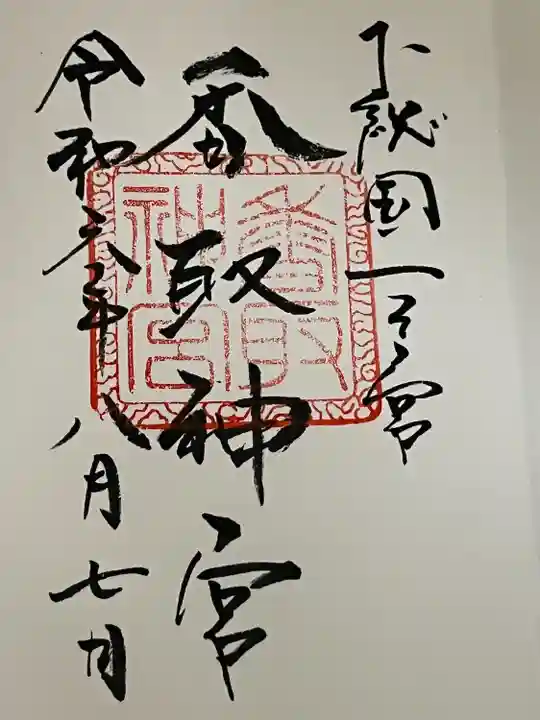 下総国一之宮
香取神宮
香取神宮
令和六年八月七日